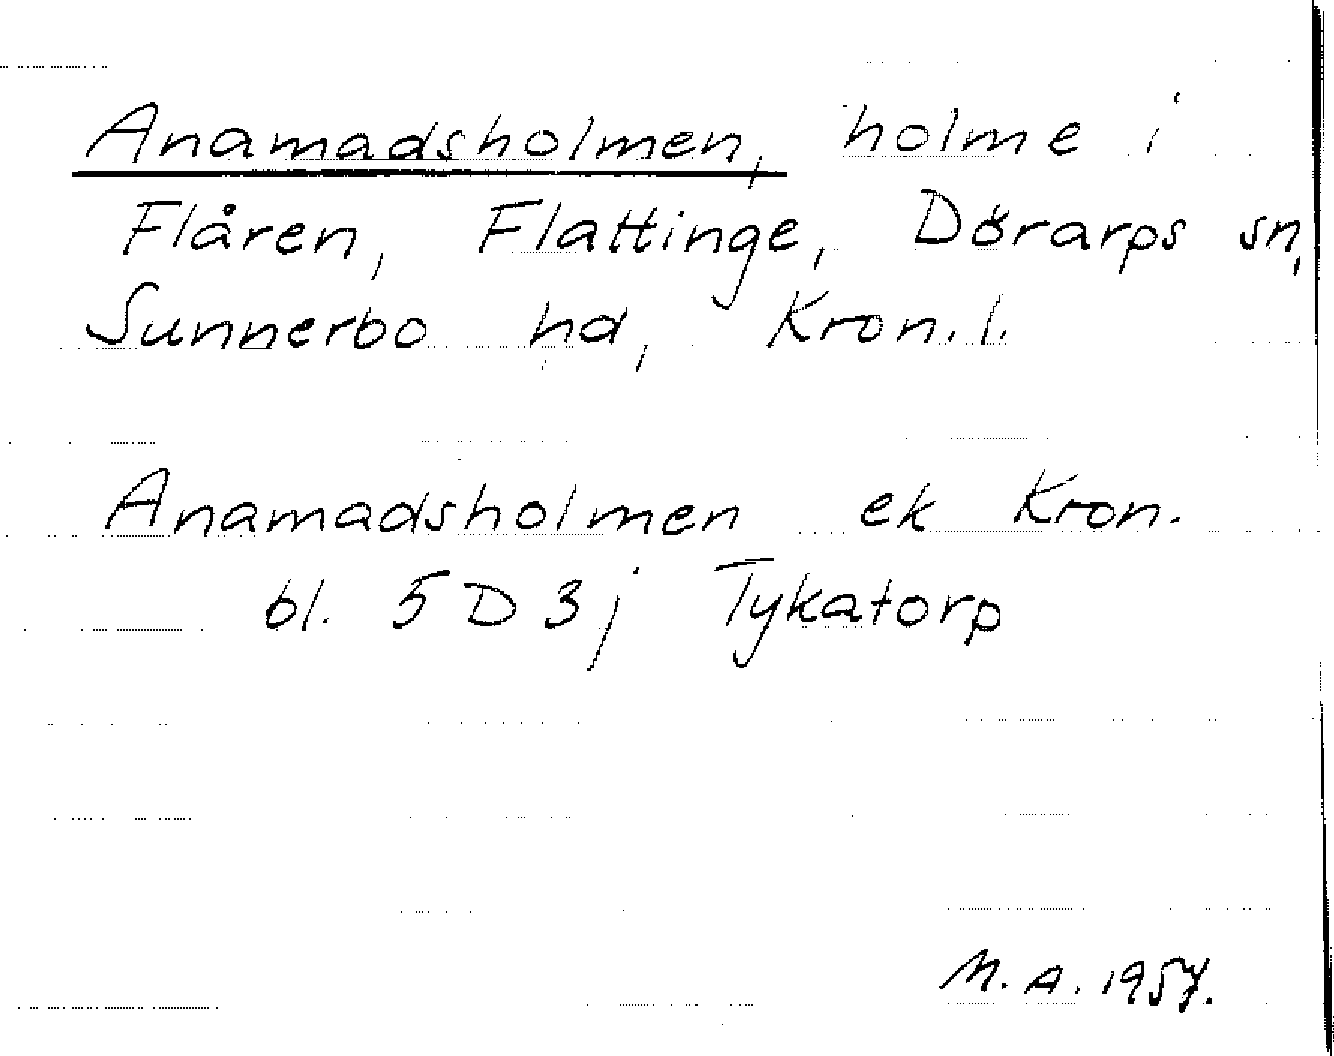 Anamadsholmen, holme i
Flåren, Flattinge, Dörarps sn,
Sunnerbo hd, Kron.l.
Anamadsholmen ek Kron.
bl. 5D3j Tykatorp
M.A. 1957.